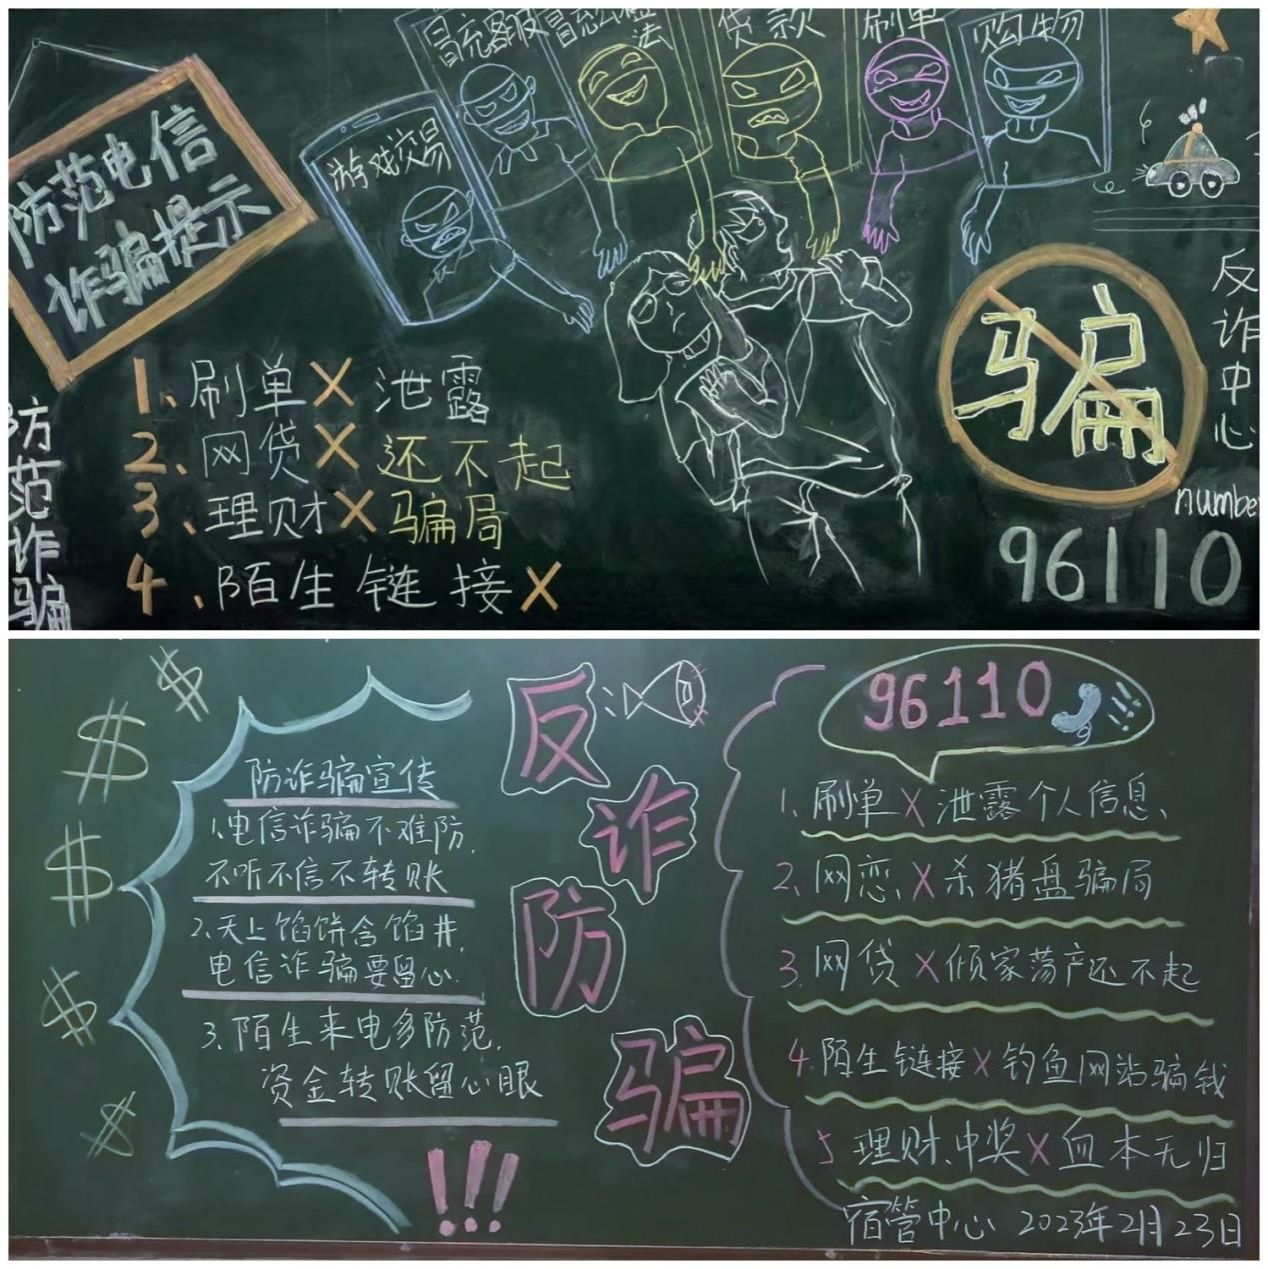 防范电信
诈骗提示
游戏交易
冒充客服
冒充公检
法
贷款
刷单
购物
1、刷单X泄露
2、网贷X还不起
3、理财X骗局
4、陌生链接X
防范诈骗
骗
反诈中心
number
96110
防诈骗宣传
1.电信诈骗不难防,
不听不信不转账
2.天上馅饼含馅井,
电信诈骗要留心.
3.陌生来电多防范,
资金转账留心眼
!!!
反
诈
防
骗
96110
1、刷单X泄露个人信息、
2、网恋X杀猪盘骗局
3、网贷X倾家荡产还不起
4.陌生链接X钓鱼网站骗钱
5 理财、中奖X血本无归
宿管中心 2023年2月23日